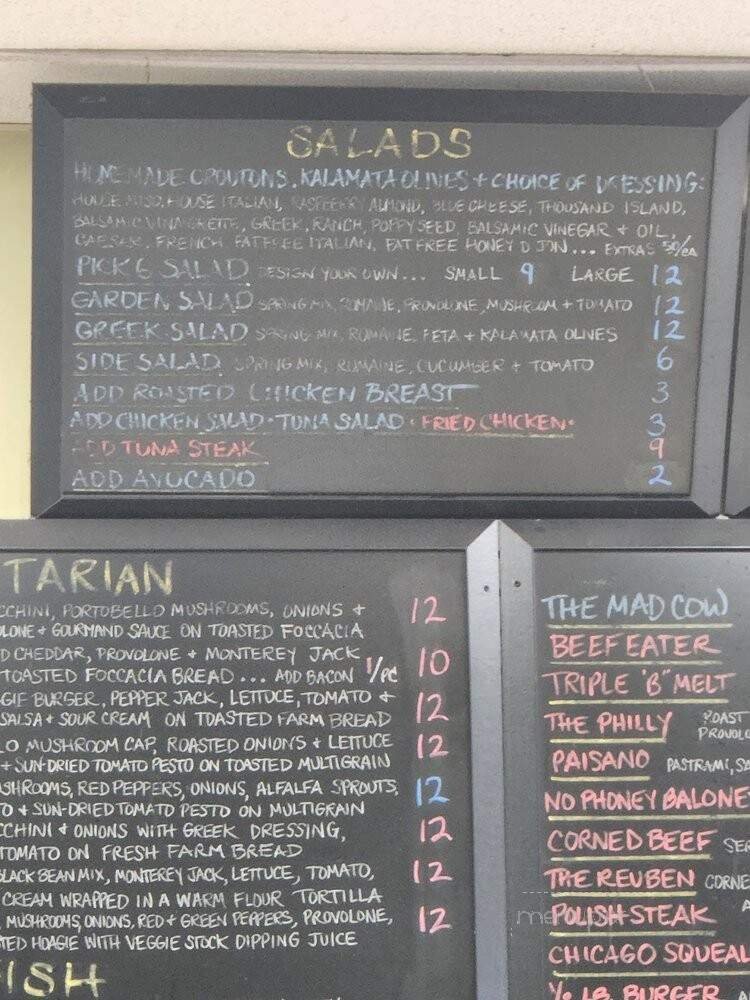 SALADS
HOMEMADE CROUTONS, KALAMATA OLIVES + CHOICE OF DRESSING:
HOUSE MISO, HOUSE ITALIAN, RASPBERRY ALMOND, BLUE CHEESE, THOUSAND ISLAND,
BALSAMIC VINAIGRETTE, GREEK, RANCH, POPPYSEED, BALSAMIC VINEGAR + OIL,
CAESAR, FRENCH, FAT FREE ITALIAN, FAT FREE HONEY DIJON... EXTRAS 50/EA
PICK 6 SALAD DESIGN YOUR OWN... SMALL 9 LARGE 12
GARDEN SALAD SPRING MIX, ROMAINE, PROVOLONE, MUSHROOM + TOMATO 12
GREEK SALAD SPRING MIX, ROMAINE, FETA + KALAMATA OLIVES 12
SIDE SALAD SPRING MIX, ROMAINE, CUCUMBER + TOMATO 6
ADD ROASTED CHICKEN BREAST 3
ADD CHICKEN SALAD • TUNA SALAD • FRIED CHICKEN • 3
ADD TUNA STEAK 9
ADD AVOCADO 2
TARIAN
CCHINI, PORTOBELLO MUSHROOMS, ONIONS + 12
LONE + GOURMAND SAUCE ON TOASTED FOCCACIA
D CHEDDAR, PROVOLONE + MONTEREY JACK 10
TOASTED FOCCACIA BREAD... ADD BACON 1/PC
GIE BURGER, PEPPER JACK, LETTUCE, TOMATO + 12
SALSA + SOUR CREAM ON TOASTED FARM BREAD
LO MUSHROOM CAP, ROASTED ONIONS + LETTUCE 12
+ SUN-DRIED TOMATO PESTO ON TOASTED MULTIGRAIN
SHROOMS, RED PEPPERS, ONIONS, ALFALFA SPROUTS, 12
TO + SUN-DRIED TOMATO PESTO ON MULTIGRAIN
CCHINI + ONIONS WITH GREEK DRESSING, 12
TOMATO ON FRESH FARM BREAD
BLACK BEAN MIX, MONTEREY JACK, LETTUCE, TOMATO, 12
CREAM WRAPPED IN A WARM FLOUR TORTILLA
MUSHROOMS, ONIONS, RED + GREEN PEPPERS, PROVOLONE, 12
TED HOAGIE WITH VEGGIE STOCK DIPPING JUICE
ISH
THE MAD COW
BEEFEATER
TRIPLE "B" MELT
THE PHILLY ROAST
PROVOLO
PAISANO PASTRAMI, SA
NO PHONEY BALONE
CORNED BEEF SER
THE REUBEN CORNE
POLISH STEAK
CHICAGO SQUEAL
1/2 LB. BURGER